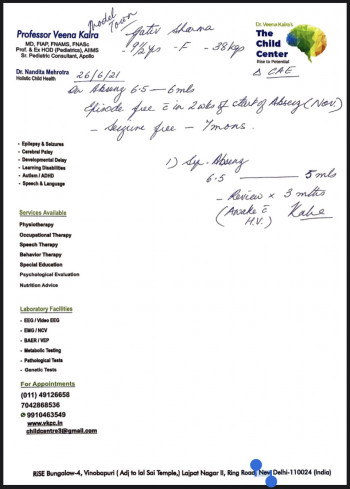 Model Town
Professor Veena Kalra
MD, FIAP, FNAMS, FNASc
Prof. & Ex HOD (Pediatrics), AIIMS
Sr. Pediatric Consultant, Apollo
Dr. Nandita Mehrotra
Holistic Child Health
Sharma
9½ yrs - F - 38 kgs
Dr. Veena Kalra's
The Child Center
Rise to Potential
Δ CAE
26/6/21
On 6.5 — 6 mls
Episode free c̄ in 2 wks of start of (Nov.)
– Seizure free – 7 mons.
1) Syp.
6.5 — 5 mls
– Review × 3 mths
(Awake c̄ H.V.)
• Epilepsy & Seizures
• Cerebral Palsy
• Developmental Delay
• Learning Disabilities
• Autism / ADHD
• Speech & Language
Services Available
Physiotherapy
Occupational Therapy
Speech Therapy
Behavior Therapy
Special Education
Psychological Evaluation
Nutrition Advice
Laboratory Facilities
• EEG / Video EEG
• EMG / NCV
• BAER / VEP
• Metabolic Testing
• Pathological Tests
• Genetic Tests
For Appointments
(011) 49126658
7042868536
9910463549
www.vkcc.in
childcentre3@gmail.com
RiSE Bungalow-4, Vinobapuri ( Adj to lal Sai Temple,) Lajpat Nagar II, Ring Road, New Delhi-110024 (India)